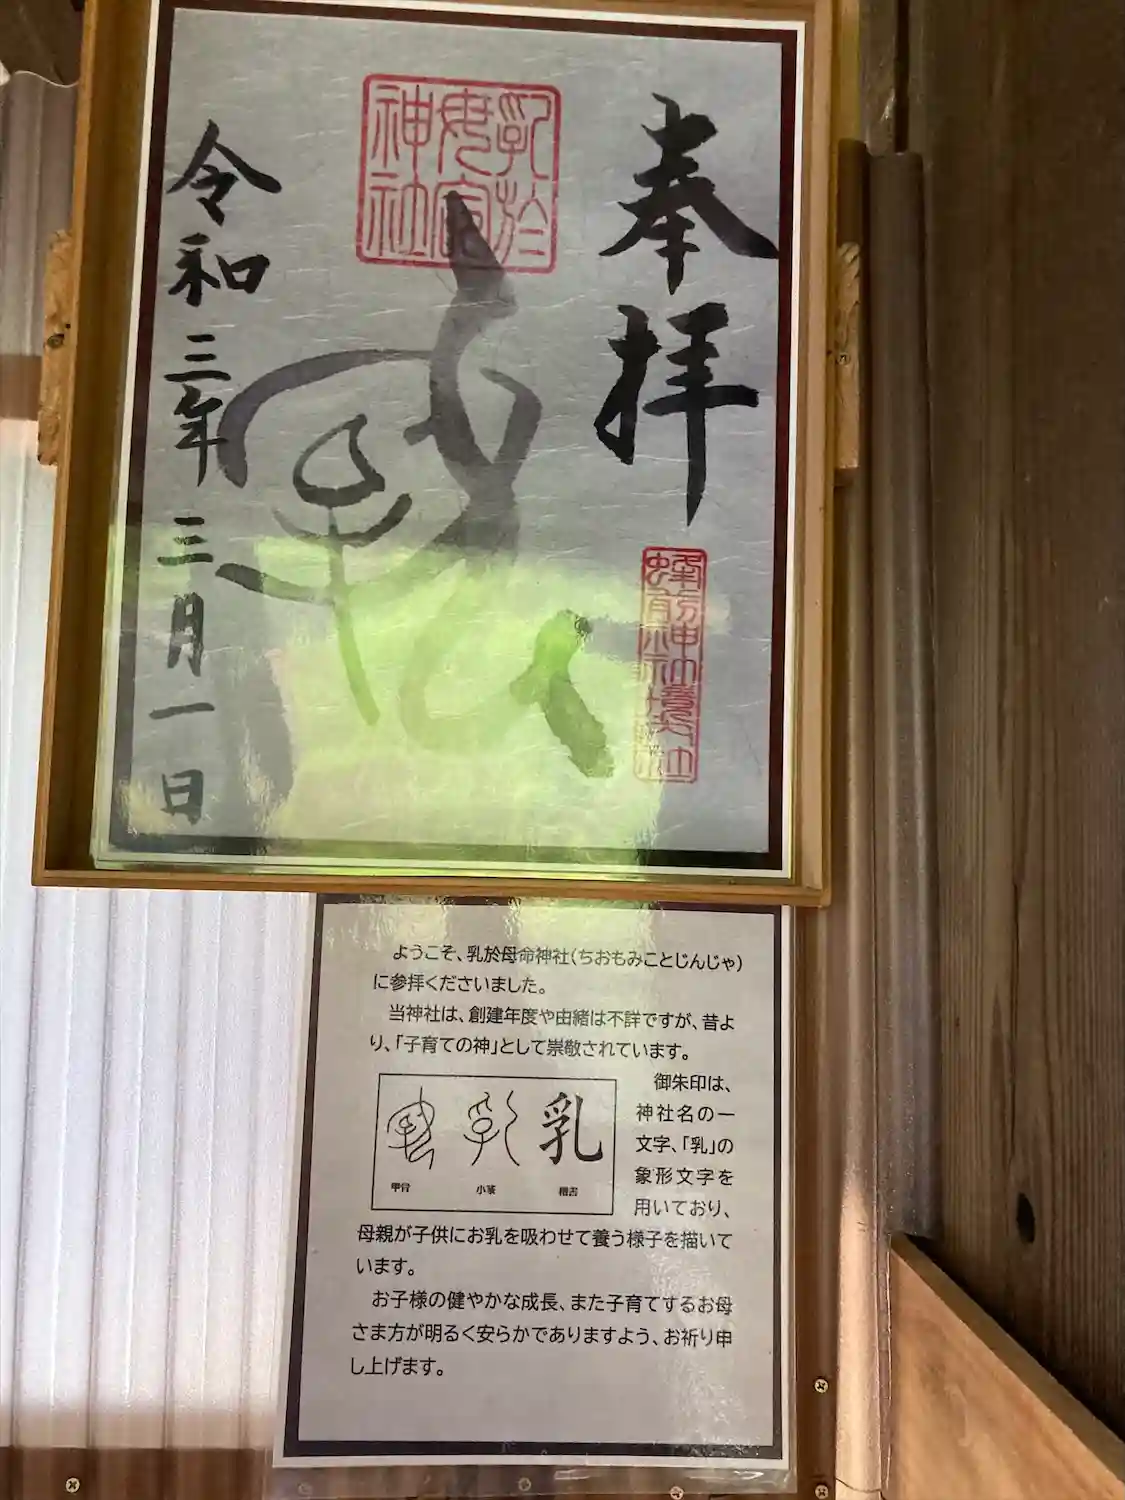 奉拝
乳於
母命
神社
蜂前神社
境内社
令和三年三月一日
ようこそ、乳於母命神社(ちおもみことじんじゃ)
に参拝くださいました。
当神社は、創建年度や由緒は不詳ですが、昔よ
り、「子育ての神」として崇敬されています。
御朱印は、
神社名の一
文字、「乳」の
象形文字を
用いており、
乳
甲骨
小篆
楷書
母親が子供にお乳を吸わせて養う様子を描いて
います。
お子様の健やかな成長、また子育てするお母
さま方が明るく安らかでありますよう、お祈り申
し上げます。